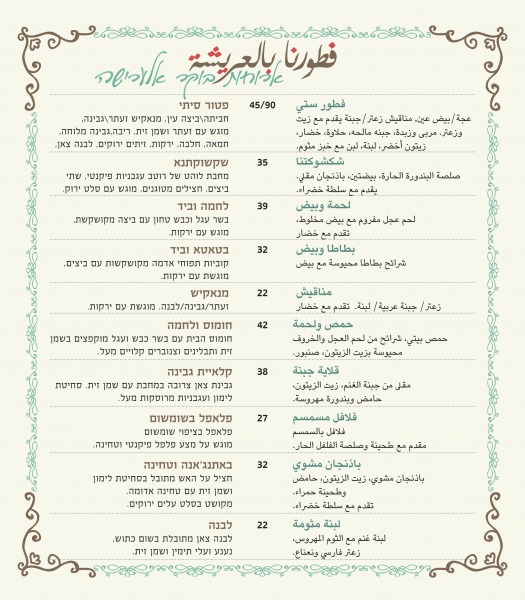 فطورنا بالعريشة
ארוחות בוקר אלערישה
فطور ستي
عجة/بيض عين، مناقيش زعتر/جبنة يقدم مع زيت
وزعتر. مربى وزبدة، جبنه مالحه، حلاوة، خضار،
زيتون أخضر، لبنة، لبن مع خبز مثوم.
45/90
פטור סיתי
חביתה\ביצה עין. מנאקיש זעתר\גבינה.
מוגש עם זעתר ושמן זית. ריבה.גבינה מלוחה.
חמאה. חלבה. ירקות. זיתים ירוקים. לבנה צאן.
شكشوكتنا
صلصة البندورة الحارة، بيضتين، باذنجان مقلي.
يقدم مع سلطة خضراء.
35
שקשוקתנא
מחבת לוהט של רוטב עגבניות פיקנטי, שתי
ביצים. חצילים מטוגנים. מוגש עם סלט ירוק.
لحمة وبيض
لحم عجل مفروم مع بيض مخلوط،
تقدم مع خضار
39
לחמה וביד
בשר עגל וכבש טחון עם ביצה מקושקשת.
מוגש עם ירקות.
بطاطا وبيض
شرائح بطاطا محيوسة مع بيض
32
בטאטא וביד
קוביות תפוחי אדמה מקושקשות עם ביצים.
מוגשת עם ירקות.
مناقيش
زعتر/ جبنة عربية/ لبنة. تقدم مع خضار
22
מנאקיש
זעתר/גבינה/לבנה. מוגשת עם ירקות.
حمص ولحمة
حمص بيتي، شرائح من لحم العجل والخروف
محيوسة بزيت الزيتون، صنوبر.
42
חומוס ולחמה
חומוס הבית עם בשר כבש ועגל מוקפצים בשמן
זית ותבלינים וצנוברים קלויים מעל.
قلاية جبنة
مقلى من جبنة الغنم، زيت الزيتون،
حامض وبندورة مهروسة.
38
קלאיית גבינה
גבינת צאן צרובה במחבת עם שמן זית. סחיטת
לימון ועגבניות מרוסקות מעל.
فلافل مسمسم
فلافل بالسمسم
مقدم مع طحينة وصلصة الفلفل الحار.
27
פלאפל בשומשום
פלאפל בציפוי שומשום
מוגש על מצע פלפל פיקנטי וטחינה.
باذنجان مشوي
باذنجان مشوي، زيت الزيتون، حامض
وطحينة حمراء.
تقدم مع سلطة خضراء.
32
באתנג'אנה וטחינה
חציל על האש מתובל בסחיטת לימון
ושמן זית עם טחינה אדומה.
מקושט בסלט עלים ירוקים.
لبنة مثومة
لبنة غنم مع الثوم المهروس،
زعتر فارسي ونعناع.
22
לבנה
לבנה צאן מתובלת בשום כתוש.
נענע ועלי תימין ושמן זית.